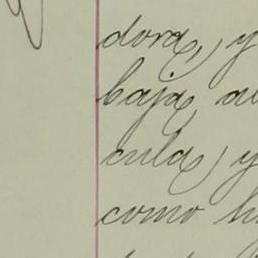 dora, y
baja, al
cula, y
como h